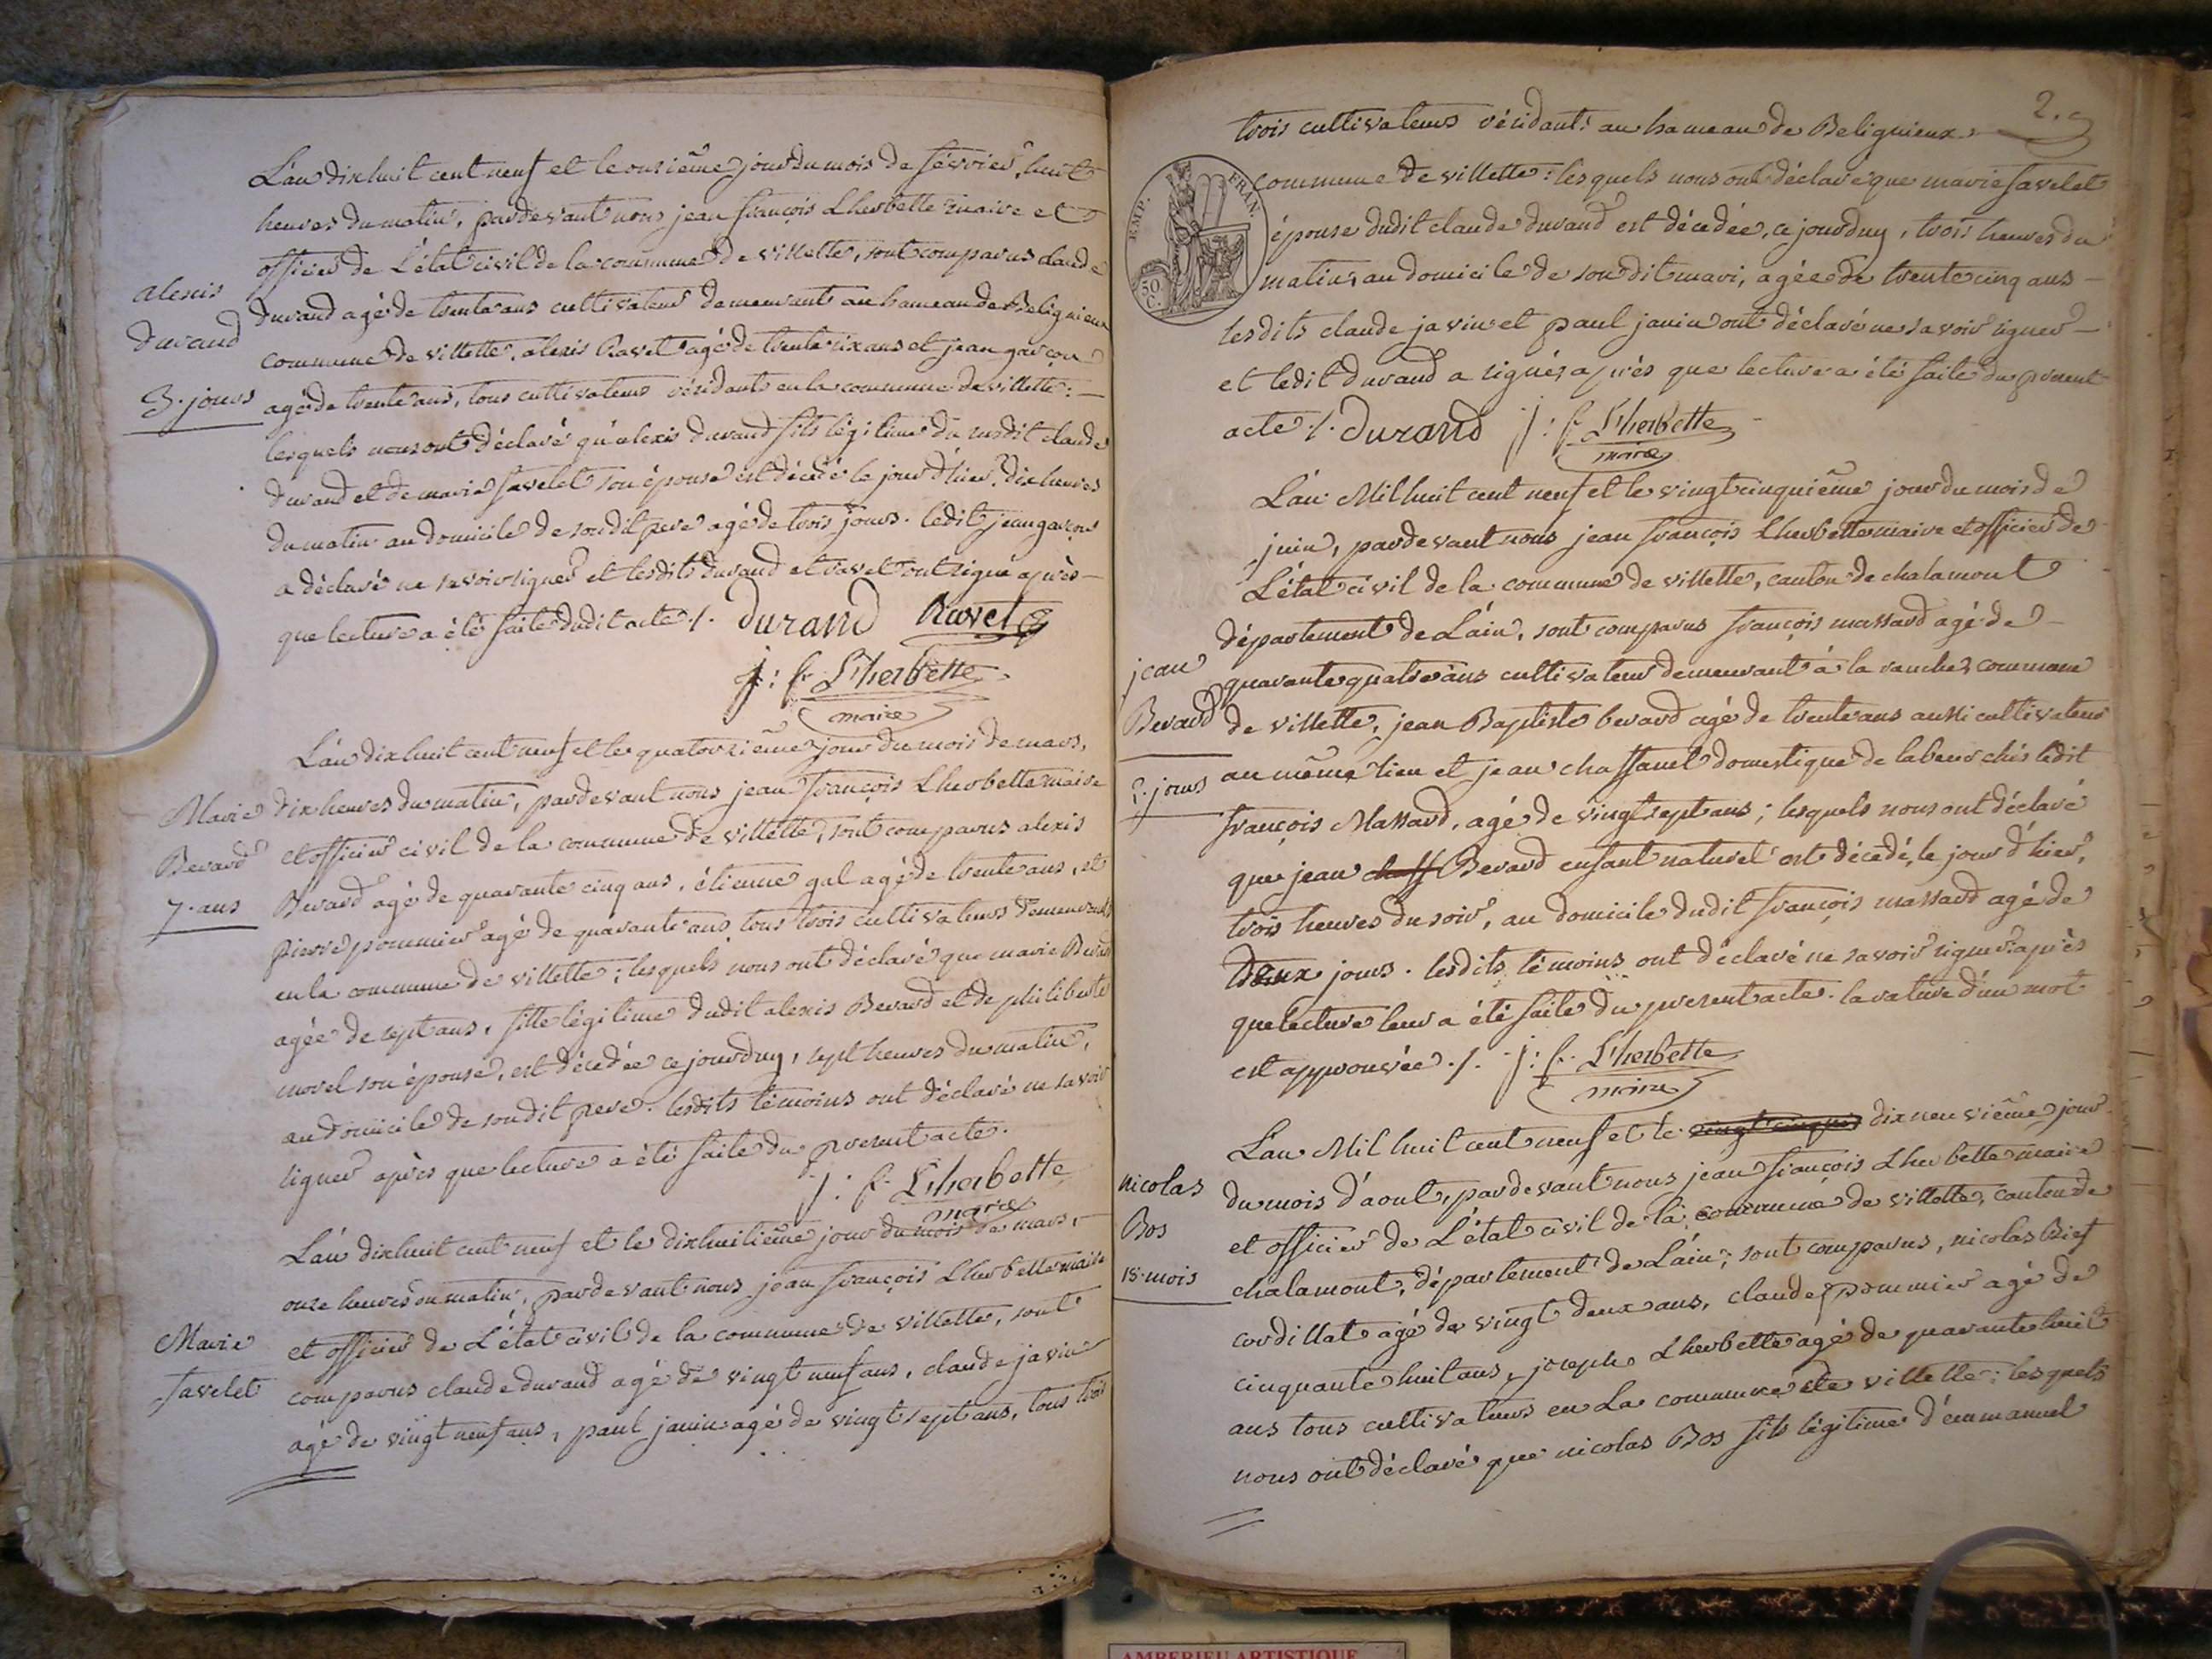 L'an dixhuit cent neuf et le onzième jour du mois de février, huit
heures du matin, pardevant nous jean françois Lherbette maire et
officier de L'état civil de la commune de villette, sont comparus claude
alexis
durand
3. jours
durand agé de trente ans cultivateur demeurant au hameau de Beligneux
commune de villette, alexis Ravet agé de trente six ans et jean garçon
agé de trente ans, tous cultivateurs résidants en la commune de villette :
lesquels nous ont déclaré qu'alexis durand fils légitime du susdit claude
durand et de marie favelet son épouse est décédé le jour d'hier, dix heures
du matin au domicile de sondit pere agé de trois jours. ledit jean garçon
a déclaré ne savoir signer et lesdits durand et ravet ont signé après
que lecture a été faite dudit acte ./. durand Ravet
j : f. Lherbette
maire
L'an dixhuit cent neuf et le quatorzième jour du mois de mars,
Marie
Berard
7. ans
dix heures du matin, pardevant nous jean françois Lherbette maire
et officier civil de la commune de villette, sont comparus alexis
Berard agé de quarante cinq ans, étienne gal agé de trente ans, et
pierre pommier agé de quarante ans tous trois cultivateurs demeurants
en la commune de villette ; lesquels nous ont déclaré que marie Berard
agée de sept ans, fille légitime dudit alexis Berard et de philiberte
morel son épouse, est décédée ce jourduy, sept heures du matin,
au domicile de sondit pere. lesdits témoins ont déclaré ne savoir
signer après que lecture a été faite du present acte.
j : f. Lherbette
maire
L'an dixhuit cent neuf et le dixhuitième jour du mois de mars,
onze heures du matin, pardevant nous jean françois Lherbette maire
Marie
favelet
et officier de L'état civil de la commune de villette, sont
comparus claude durand agé de vingt neuf ans, claude javin
agé de vingt neuf ans, paul janin agé de vingt sept ans, tous trois
2.
trois cultivateurs résidants au hameau de Beligneux
EMP. FRAN.
50 C.
commune de villette : lesquels nous ont déclaré que marie favelet
épouse dudit claude durand est décédée, ce jourduy, trois heures du
matin, au domicile de sondit mari, agée de trente cinq ans
lesdits claude javin et paul janin ont déclaré ne savoir signer
et ledit durand a signé, après que lecture a été faite du present
acte ./. durand j : f. Lherbette
maire
L'an Mil huit cent neuf et le vingt cinquième jour du mois de
juin, pardevant nous jean françois Lherbette maire et officier de
L'état civil de la commune de villette, canton de chalamont
département de L'ain, sont comparus françois massard agé de
jean
Berard
2. jours
quarante quatre ans cultivateur demeurant à la ranche, commune
de villette, jean Baptiste berard agé de trente ans aussi cultivateur
au même lieu et jean chassanel domestique de labeur chés ledit
françois Massard, agé de vingt sept ans ; lesquels nous ont déclaré
que jean chass Berard enfant naturel est décédé, le jour d'hier,
trois heures du soir, au domicile dudit françois massard agé de
Deux jours. lesdits témoins ont déclaré ne savoir signer après
que lecture leur a été faite du present acte. la rature d'un mot
est approuvée ./. j : f. Lherbette
maire
L'an Mil huit cent neuf et le vingt cinquiè dix neuvième jour
nicolas
Bos
15. mois
du mois d'aout, pardevant nous jean françois Lherbette maire
et officier de L'état civil de la commune de villette, canton de
chalamont, département de L'ain ; sont comparus, nicolas Bief
cordillat agé de vingt deux ans, claude pommier agé de
cinquante huit ans, joseph Lherbette agé de quarante huit
ans tous cultivateurs en La commune de villette ; lesquels
nous ont déclaré que nicolas Bos fils légitime d'emmanuel
AMBERIEU ARTISTIQUE